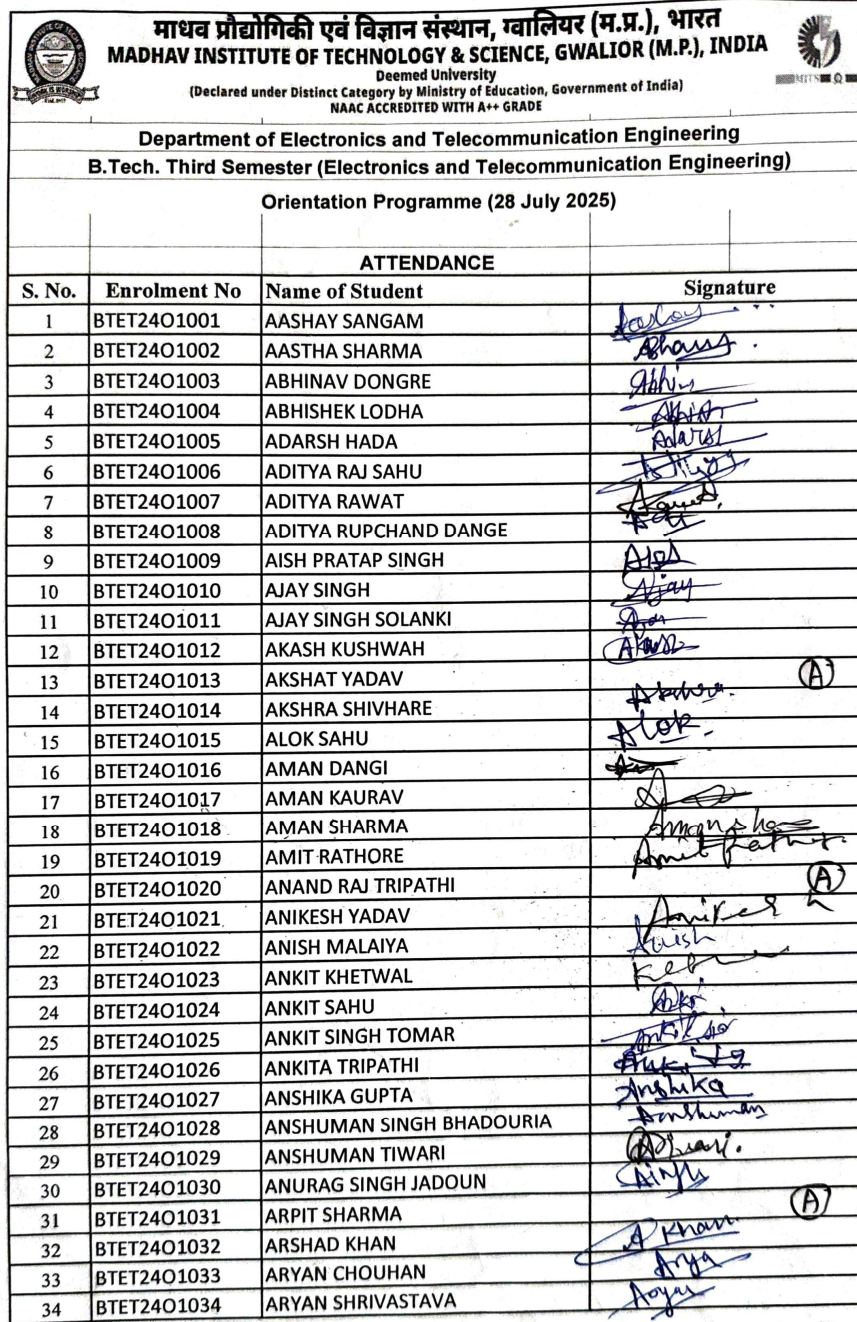 माधव प्रौद्योगिकी एवं विज्ञान संस्थान, ग्वालियर (म.प्र.), भारत
MADHAV INSTITUTE OF TECHNOLOGY & SCIENCE, GWALIOR (M.P.), INDIA
Deemed University
(Declared under Distinct Category by Ministry of Education, Government of India)
NAAC ACCREDITED WITH A++ GRADE
Department of Electronics and Telecommunication Engineering
B.Tech. Third Semester (Electronics and Telecommunication Engineering)
Orientation Programme (28 July 2025)
ATTENDANCE
S. No. Enrolment No Name of Student Signature
1 BTET24O1001 AASHAY SANGAM
2 BTET24O1002 AASTHA SHARMA
3 BTET24O1003 ABHINAV DONGRE
4 BTET24O1004 ABHISHEK LODHA
5 BTET24O1005 ADARSH HADA Adarsh
6 BTET24O1006 ADITYA RAJ SAHU
7 BTET24O1007 ADITYA RAWAT
8 BTET24O1008 ADITYA RUPCHAND DANGE
9 BTET24O1009 AISH PRATAP SINGH
10 BTET24O1010 AJAY SINGH Ajay
11 BTET24O1011 AJAY SINGH SOLANKI
12 BTET24O1012 AKASH KUSHWAH Akash
13 BTET24O1013 AKSHAT YADAV A
14 BTET24O1014 AKSHRA SHIVHARE
15 BTET24O1015 ALOK SAHU Alok
16 BTET24O1016 AMAN DANGI
17 BTET24O1017 AMAN KAURAV
18 BTET24O1018 AMAN SHARMA
19 BTET24O1019 AMIT RATHORE Amit
20 BTET24O1020 ANAND RAJ TRIPATHI A
21 BTET24O1021 ANIKESH YADAV
22 BTET24O1022 ANISH MALAIYA Anish
23 BTET24O1023 ANKIT KHETWAL
24 BTET24O1024 ANKIT SAHU
25 BTET24O1025 ANKIT SINGH TOMAR
26 BTET24O1026 ANKITA TRIPATHI
27 BTET24O1027 ANSHIKA GUPTA Anshika
28 BTET24O1028 ANSHUMAN SINGH BHADOURIA Anshuman
29 BTET24O1029 ANSHUMAN TIWARI
30 BTET24O1030 ANURAG SINGH JADOUN
31 BTET24O1031 ARPIT SHARMA A
32 BTET24O1032 ARSHAD KHAN A Khan
33 BTET24O1033 ARYAN CHOUHAN Arya
34 BTET24O1034 ARYAN SHRIVASTAVA